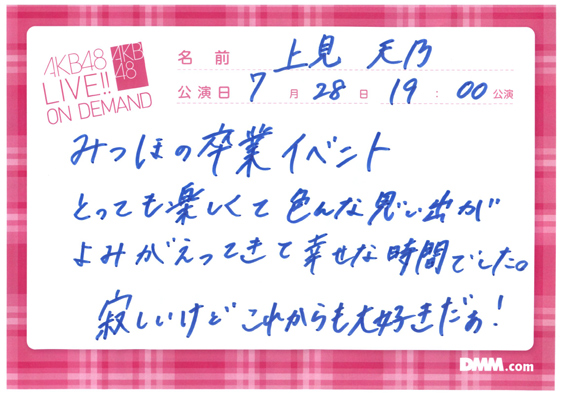 AKB48
LIVE!!
ON DEMAND
AKB
48
名前 上見 天乃
公演日 7月28日 19:00公演
みつほの卒業イベント
とっても楽しくて色んな思い出が
よみがえってきて幸せな時間でした。
寂しいけどこれからも大好きだぁ!
DMM.com